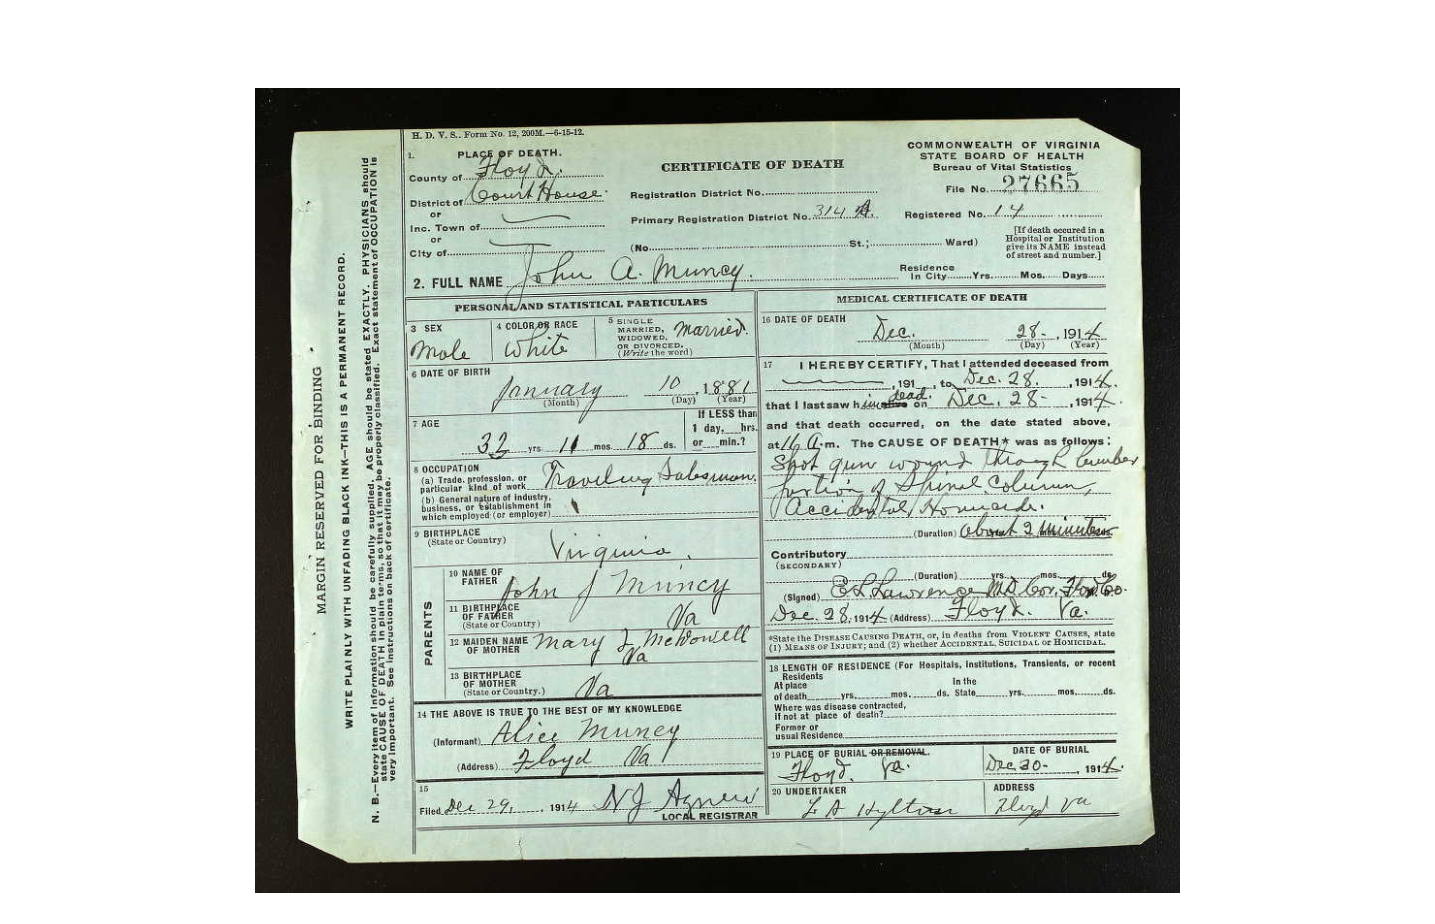 H. D. V. S.. Form No. 12, 200M.—6-15-12.
MARGIN RESERVED FOR BINDING
WRITE PLAINLY WITH UNFADING BLACK INK—THIS IS A PERMANENT RECORD.
N. B.—Every item of information should be carefully supplied. AGE should be stated EXACTLY. PHYSICIANS should
state CAUSE OF DEATH in plain terms, so that it may be properly classified. Exact statement of OCCUPATION is
very important. See instructions on back of certificate.
1. PLACE OF DEATH.
County of Floyd.
District of Court House.
or
Inc. Town of
or
City of
CERTIFICATE OF DEATH
Registration District No.
Primary Registration District No. 314 A.
(No. St.; Ward)
COMMONWEALTH OF VIRGINIA
STATE BOARD OF HEALTH
Bureau of Vital Statistics
File No. 27665
Registered No. 14
[If death occured in a
Hospital or Institution
give its NAME instead
of street and number.]
2. FULL NAME John A. Muncy.
Residence
In City Yrs. Mos. Days
PERSONAL AND STATISTICAL PARTICULARS
3 SEX
Male
4 COLOR OR RACE
White
5 SINGLE
MARRIED,
WIDOWED,
OR DIVORCED.
(Write the word)
Married.
6 DATE OF BIRTH
January 10, 1881
(Month) (Day) (Year)
7 AGE
33 yrs. 11 mos. 18 ds.
If LESS than
1 day, hrs.
or min.?
8 OCCUPATION
(a) Trade, profession, or
particular kind of work Traveling Salesman.
(b) General nature of industry,
business, or establishment in
which employed (or employer)
9 BIRTHPLACE
(State or Country)
Virginia.
PARENTS
10 NAME OF
FATHER John J Muncy
11 BIRTHPLACE
OF FATHER
(State or Country) Va
12 MAIDEN NAME
OF MOTHER Mary J McDowell
Va
13 BIRTHPLACE
OF MOTHER
(State or Country.) Va
14 THE ABOVE IS TRUE TO THE BEST OF MY KNOWLEDGE
(Informant) Alice Muncy
(Address) Floyd Va
15
Filed Dec 29, 1914 N J Agnew
LOCAL REGISTRAR
MEDICAL CERTIFICATE OF DEATH
16 DATE OF DEATH
Dec. 28-, 1914
(Month) (Day) (Year)
17 I HEREBY CERTIFY, That I attended deceased from
, 191 , to Dec. 28. , 1914.
that I last saw him dead. on Dec. 28- , 1914.
and that death occurred, on the date stated above,
at A.m. The CAUSE OF DEATH* was as follows:
Shot gun wound through lumber
portion of Spinal Column,
Accidental Homicide.
(Duration) about 2 minutes
Contributory
(SECONDARY)
(Duration) yrs. mos. ds.
(Signed) E L Lawrence M.D. Cor. Floyd Co.
Dec. 28, 1914 (Address) Floyd. Va.
*State the DISEASE CAUSING DEATH, or, in deaths from VIOLENT CAUSES, state
(1) MEANS OF INJURY; and (2) whether ACCIDENTAL, SUICIDAL or HOMICIDAL.
18 LENGTH OF RESIDENCE (For Hospitals, Institutions, Transients, or recent
Residents
At place In the
of death yrs. mos. ds. State yrs. mos. ds.
Where was disease contracted,
if not at place of death?
Former or
usual Residence
19 PLACE OF BURIAL OR REMOVAL.
Floyd. Va.
DATE OF BURIAL
Dec 30- , 1914.
20 UNDERTAKER
L A Hylton
ADDRESS
Floyd Va